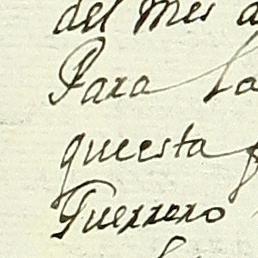 del Mes d
Para la
questa
Guerrero